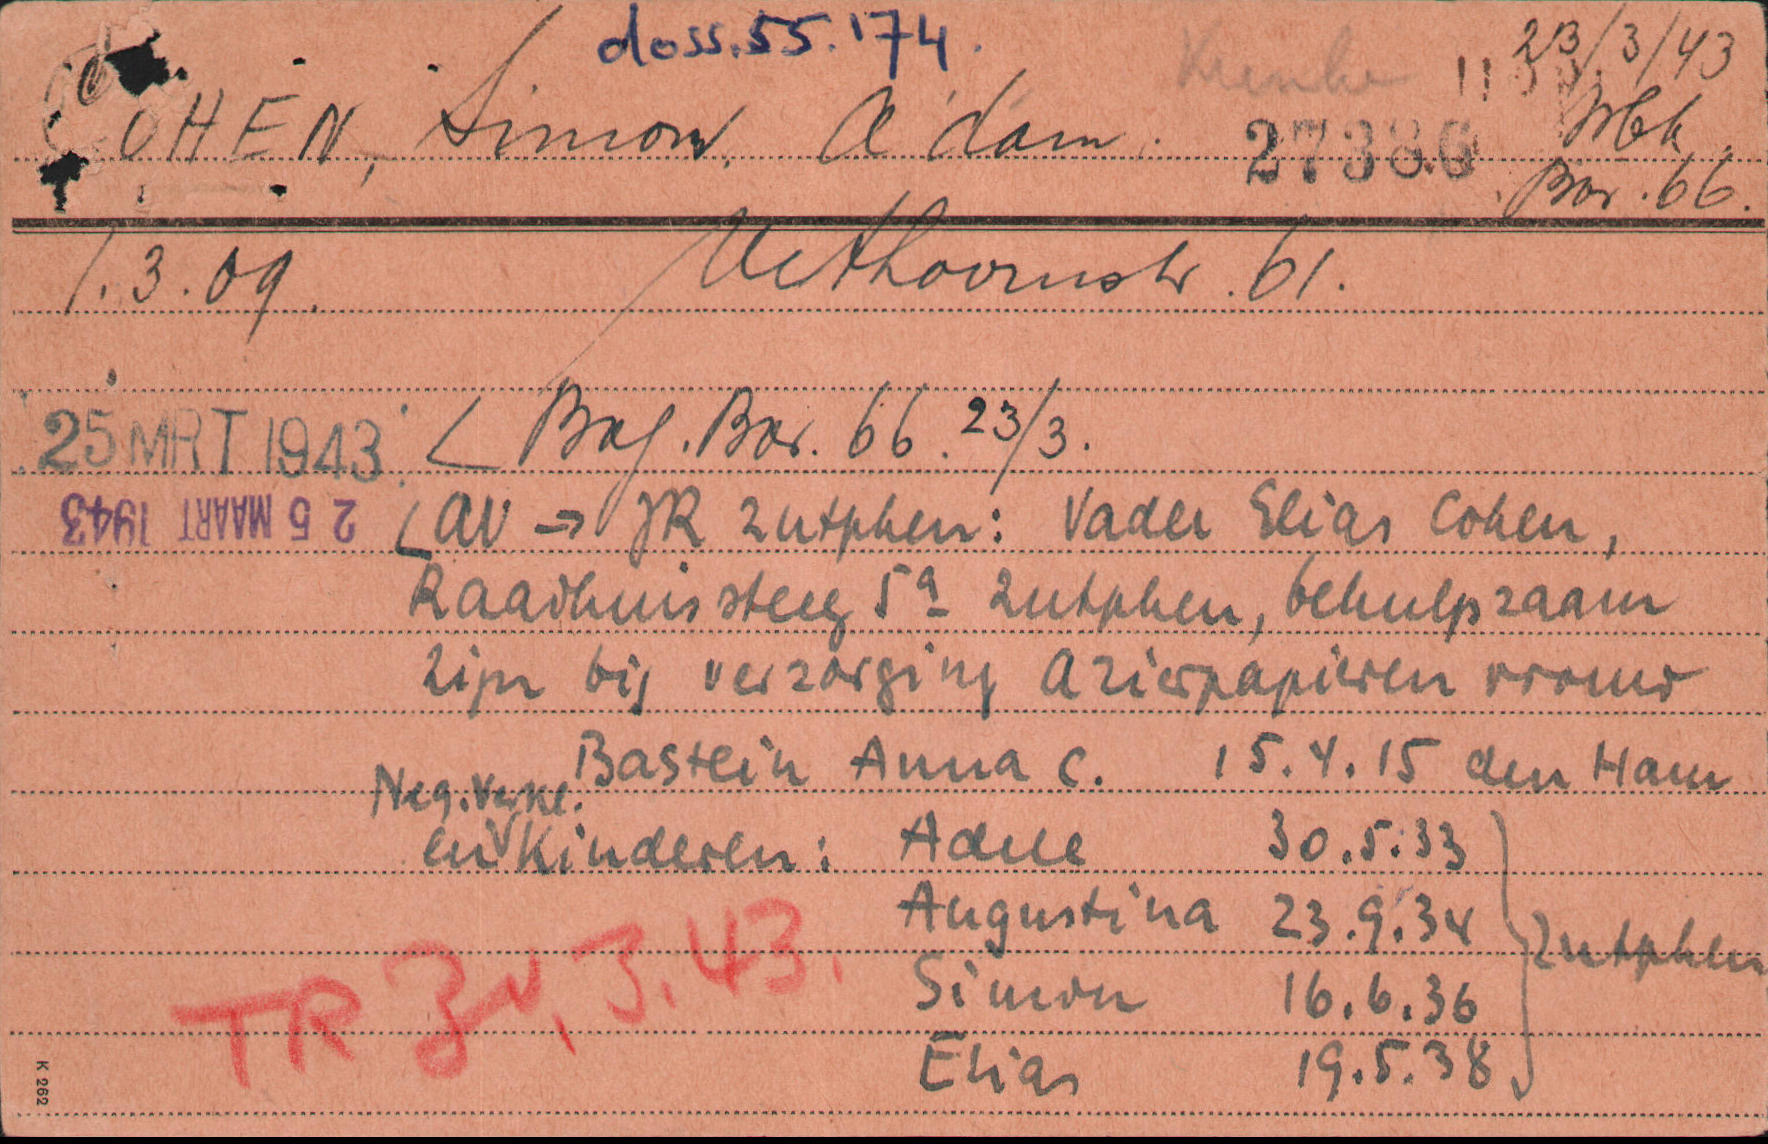 doss. 55.174.
23/3/43
COHEN, Simon, Adam. 27386
Wbk.
Bar. 66.
1.3.09. 61.
25 MRT 1943. Bar. 66. 23/3.
25 MAART 1943 AV → JR Zutphen: Vader Elias Cohen,
Raadhuissteeg 5a Zutphen, behulpzaam
zijn bij verzorging Arierpapieren vrouw
Bastein Anna C. 15.4.15 den Ham
Neg. Verkl.
en Kinderen: Adele 30.5.33
Augustina 23.9.34
Zutphen
Simon 16.6.36
TR 3.43.
Elias 19.5.38
K 262